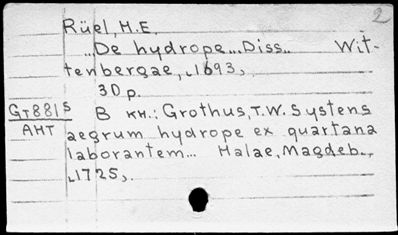 2
Rüel, H.E.
...De hydrope...Diss.. Wit-
tenbergae, ˪1693˼.
30 p.
GT881s В кн.: Grothus, T.W. Systens
АНТ aegrum hydrope ex quartana
laborantem... Halae, Magdeb.,
˪1725˼.